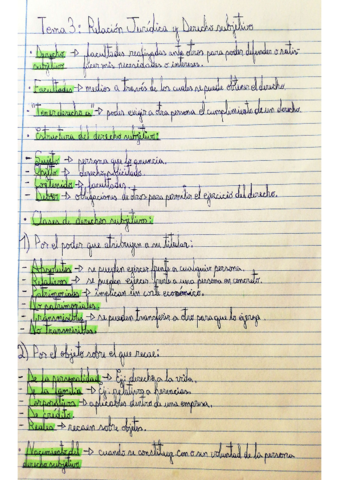 Tema 3: Relación Jurídica y Derecho subjetivo
• Derecho subjetivo → facultades realizadas ante otros para poder defender o satisficer mis necesidades o intereses.
• Facultades → medios a través de los cuales se puede obtener el derecho
• "Tener derecho a" → poder exigir a otra persona el cumplimiento de un derecho.
• Estructura del derecho subjetivo:
- Sujeto → persona que lo
- Objeto → derecho
- Contenido → facultades.
- Deber → obligaciones de otros para permitir el ejercicio del derecho.
• Clases de derechos subjetivos:
1) Por el poder que atribuyen a su titular:
- Absolutos → se pueden ejercer frente a cualquier persona.
- Relativos → se pueden ejercer frente a una persona en concreto.
- Patrimoniales → implican un coste económico.
- No patrimoniales.
- Transmisibles → se pueden transferir a otro para que lo ejerza.
- No transmisibles.
2) Por el objeto sobre el que recae:
- De la personalidad → Ej: derecho a la vida.
- De la familia → Ej: relativo a herencias.
- Corporativos → aplicables dentro de una empresa.
- De crédito.
- Reales → recaen sobre objetos.
• Nacimiento del derecho subjetivo → cuando se constituye con o sin voluntad de la persona